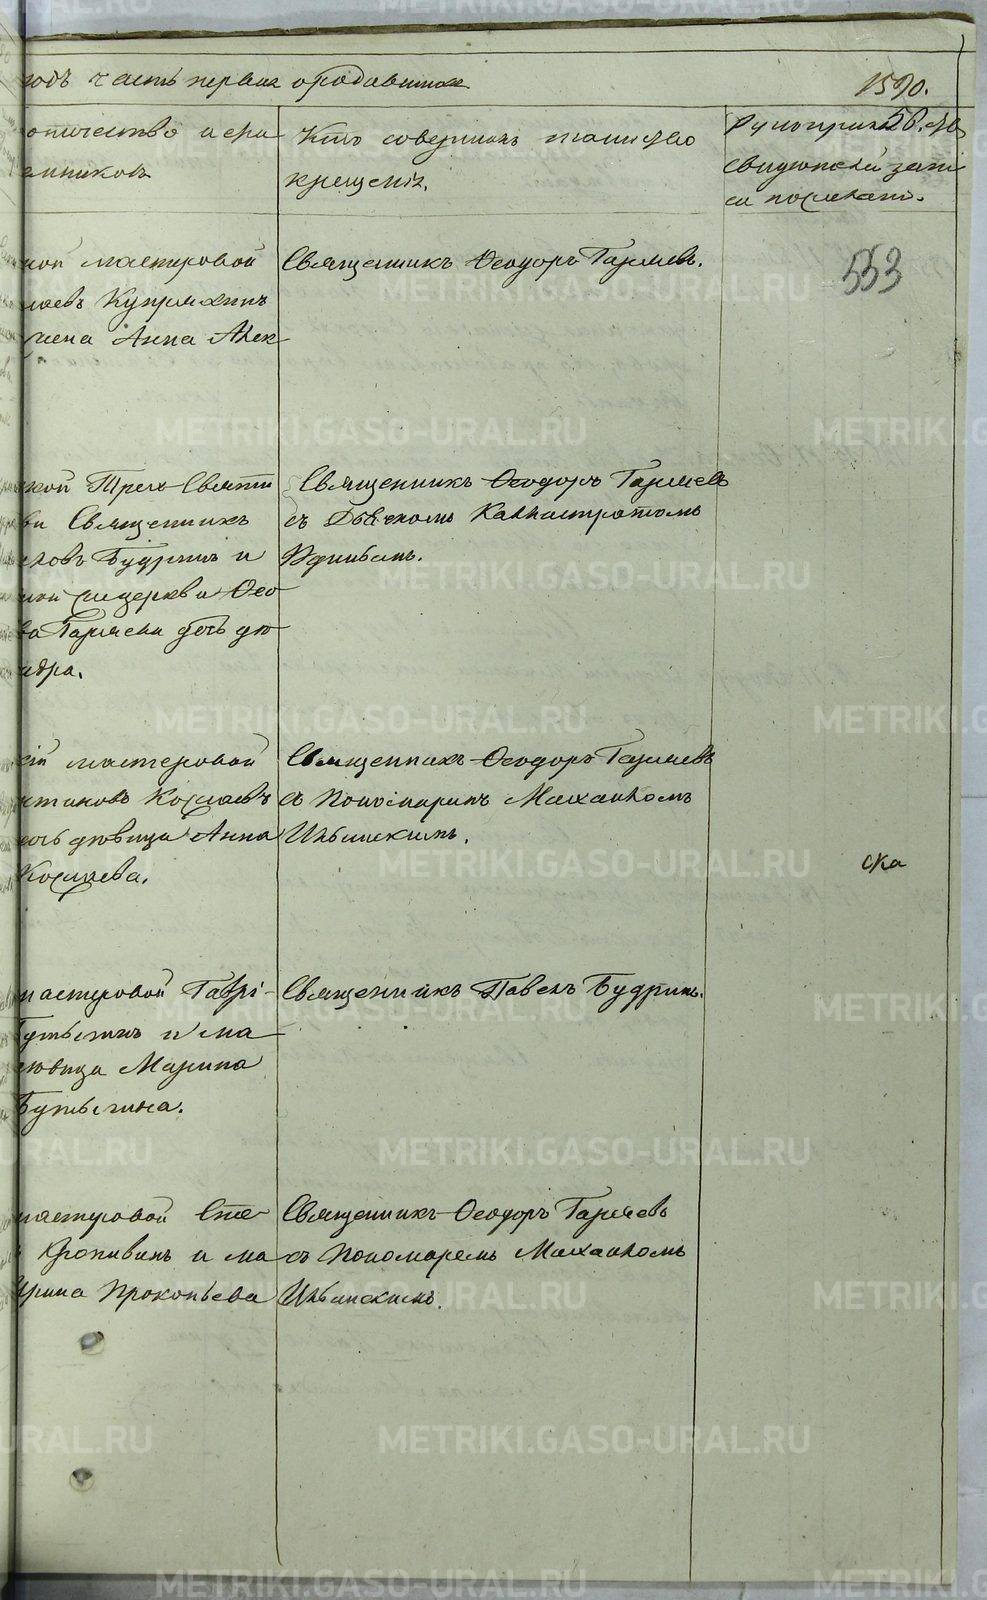 годъ часть первая о родившихся
1590.
отчество и фа
емниковъ
Кто совершалъ таинство
крещенія.
Рукоприкл
свидѣтелей запи
си по желанію.
ной мастеровой
лаевъ Купряхинъ
жена Анна Алек
Священникъ Ѳеодоръ Гаряевъ.
553
ской Трех-Святи
ви Священникъ
Будринъ и
ной сц церкви Ѳео
ва Гаряева дочь дѣ
ндра.
Священникъ Ѳеодоръ Гаряевъ
съ Дьячкомъ Каллистратомъ
мастеровой
дочь дѣвица Анна
Священникъ Ѳеодоръ Гаряевъ
съ Пономаремъ Михаиломъ
Ильинскимъ.
ска
мастеровой Гаврі-
Бутыгинъ и ма
дѣвица Марина
Бутыгина.
Священникъ Павелъ Будринъ.
мастеровой Сте
Кропивинъ и ма
Ирина Прокопьева
Священникъ Ѳеодоръ Гаряевъ
съ Пономаремъ Михаиломъ
Ильинскимъ.
METRIKI.GASO-URAL.RU